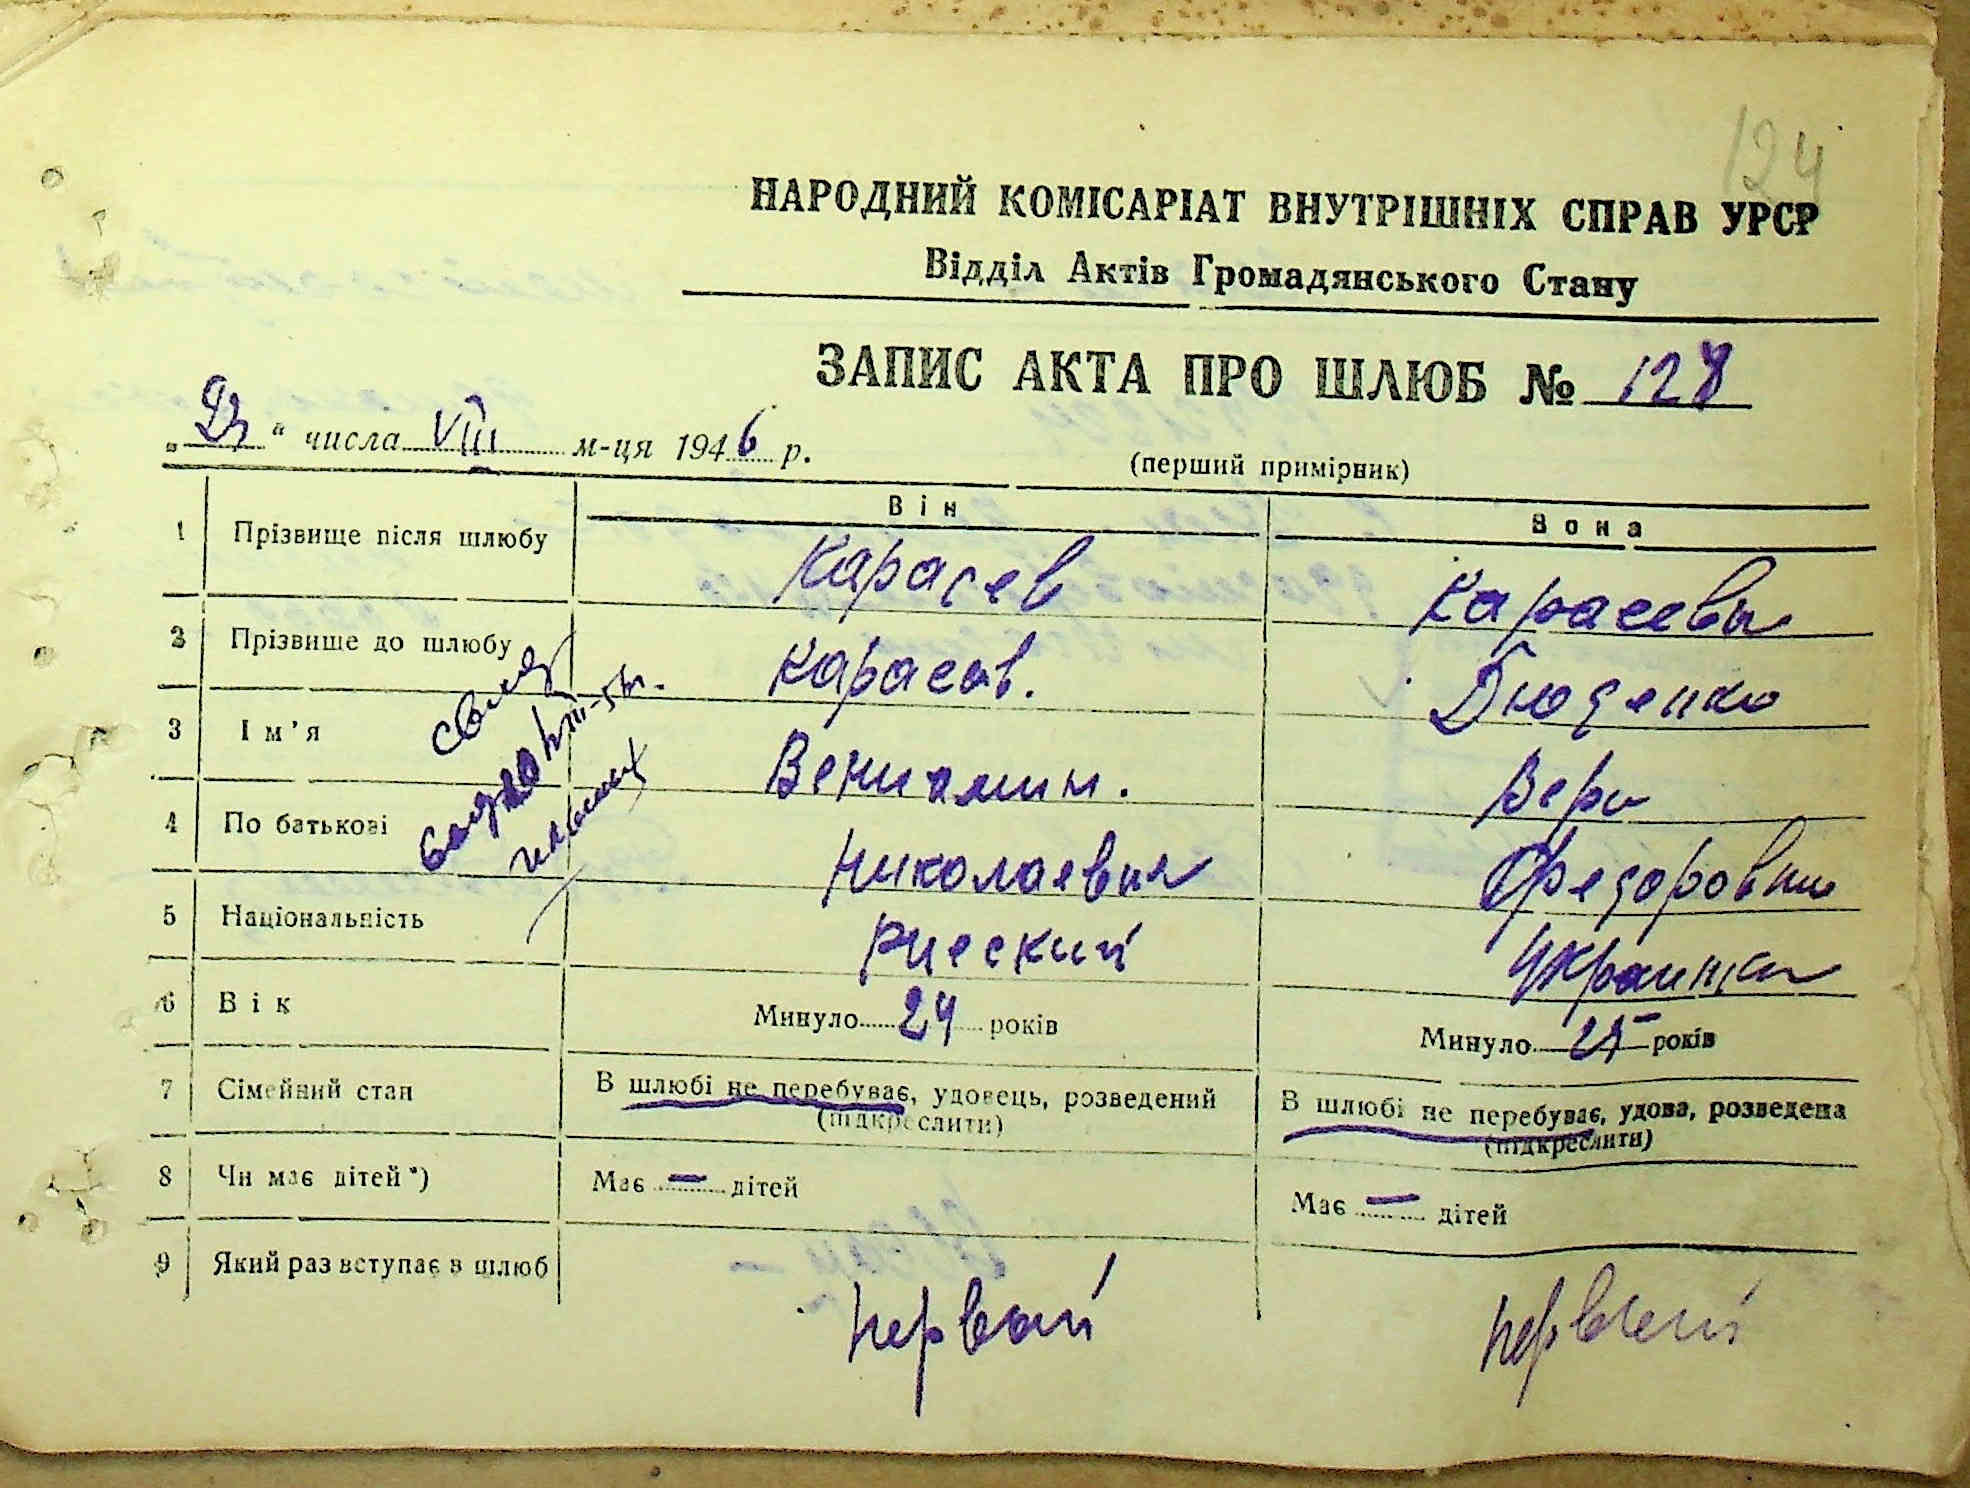 124
НАРОДНИЙ КОМІСАРІАТ ВНУТРІШНІХ СПРАВ УРСР
Відділ Актів Громадянського Стану
ЗАПИС АКТА ПРО ШЛЮБ № 128
" " числа VIII м-ця 1946 р.
(перший примірник)
Він Вона
1 Прізвище після шлюбу Карасев Карасева
2 Прізвище до шлюбу Карасев. Дюденко
3 Ім'я Вениамин. Вера
4 По батькові Николаевич Федоровна
5 Національність русский Украинка
6 Вік Минуло 24 років Минуло 25 років
7 Сімейний стан В шлюбі не перебуває, удовець, розведений В шлюбі не перебуває, удова, розведена
(підкреслити) (підкреслити)
8 Чи має дітей *) Має – дітей Має – дітей
9 Який раз вступає в шлюб первый первый